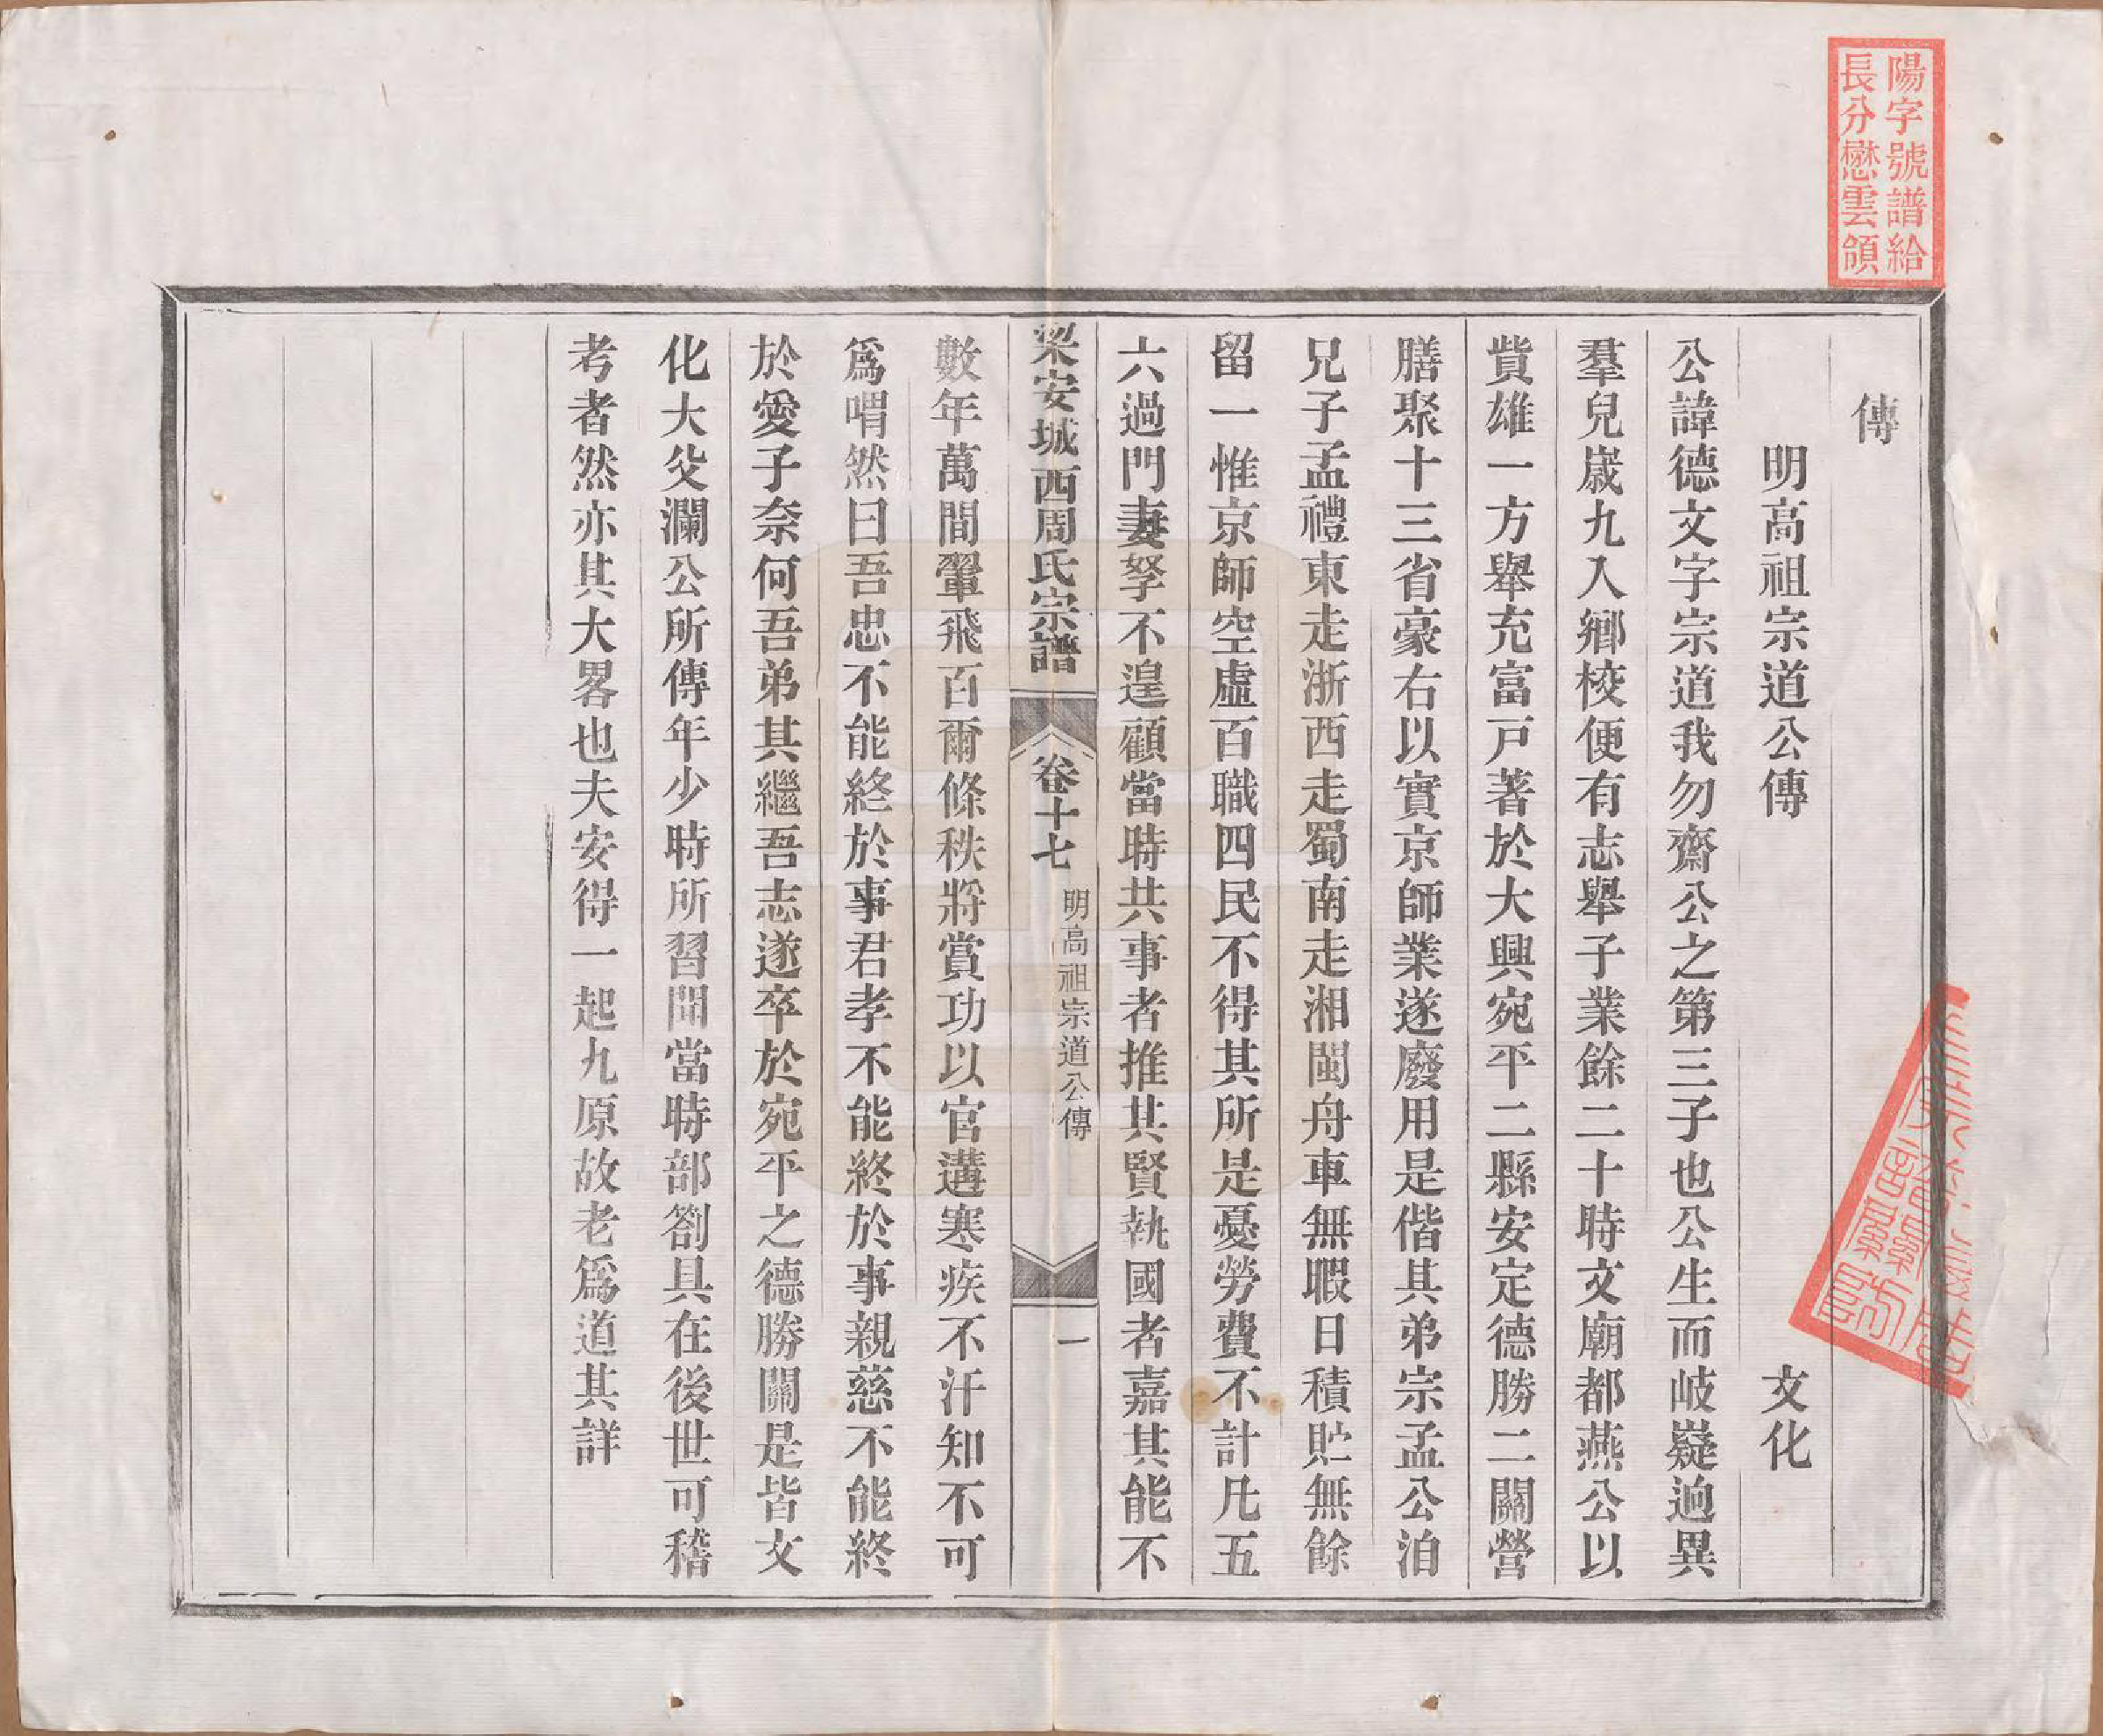 陽字號譜給
長分懋雲領
傳
明高祖宗道公傳
文化
公諱德文字宗道我勿齋公之第三子也公生而岐嶷逈異
羣兒歲九入鄉校便有志舉子業餘二十時文廟都燕公以
貲雄一方舉充富戸著於大興宛平二縣安定德勝二關營
膳聚十三省豪右以實京師業遂廢用是偕其弟宗孟公洎
兄子孟禮東走浙西走蜀南走湘閩舟車無暇日積貯無餘
留一惟京師空虛百職四民不得其所是憂勞費不計凡五
六過門妻孥不遑顧當時共事者推其賢執國者嘉其能不
梁安城西周氏宗譜
卷十七
明高祖宗道公傳
一
數年萬間翬飛百爾條秩將賞功以官遘寒疾不汗知不可
爲喟然曰吾忠不能終於事君孝不能終於事親慈不能終
於愛子奈何吾弟其繼吾志遂卒於宛平之德勝關是皆文
化大父瀾公所傳年少時所習聞當時部劄具在後世可稽
考者然亦其大畧也夫安得一起九原故老爲道其詳